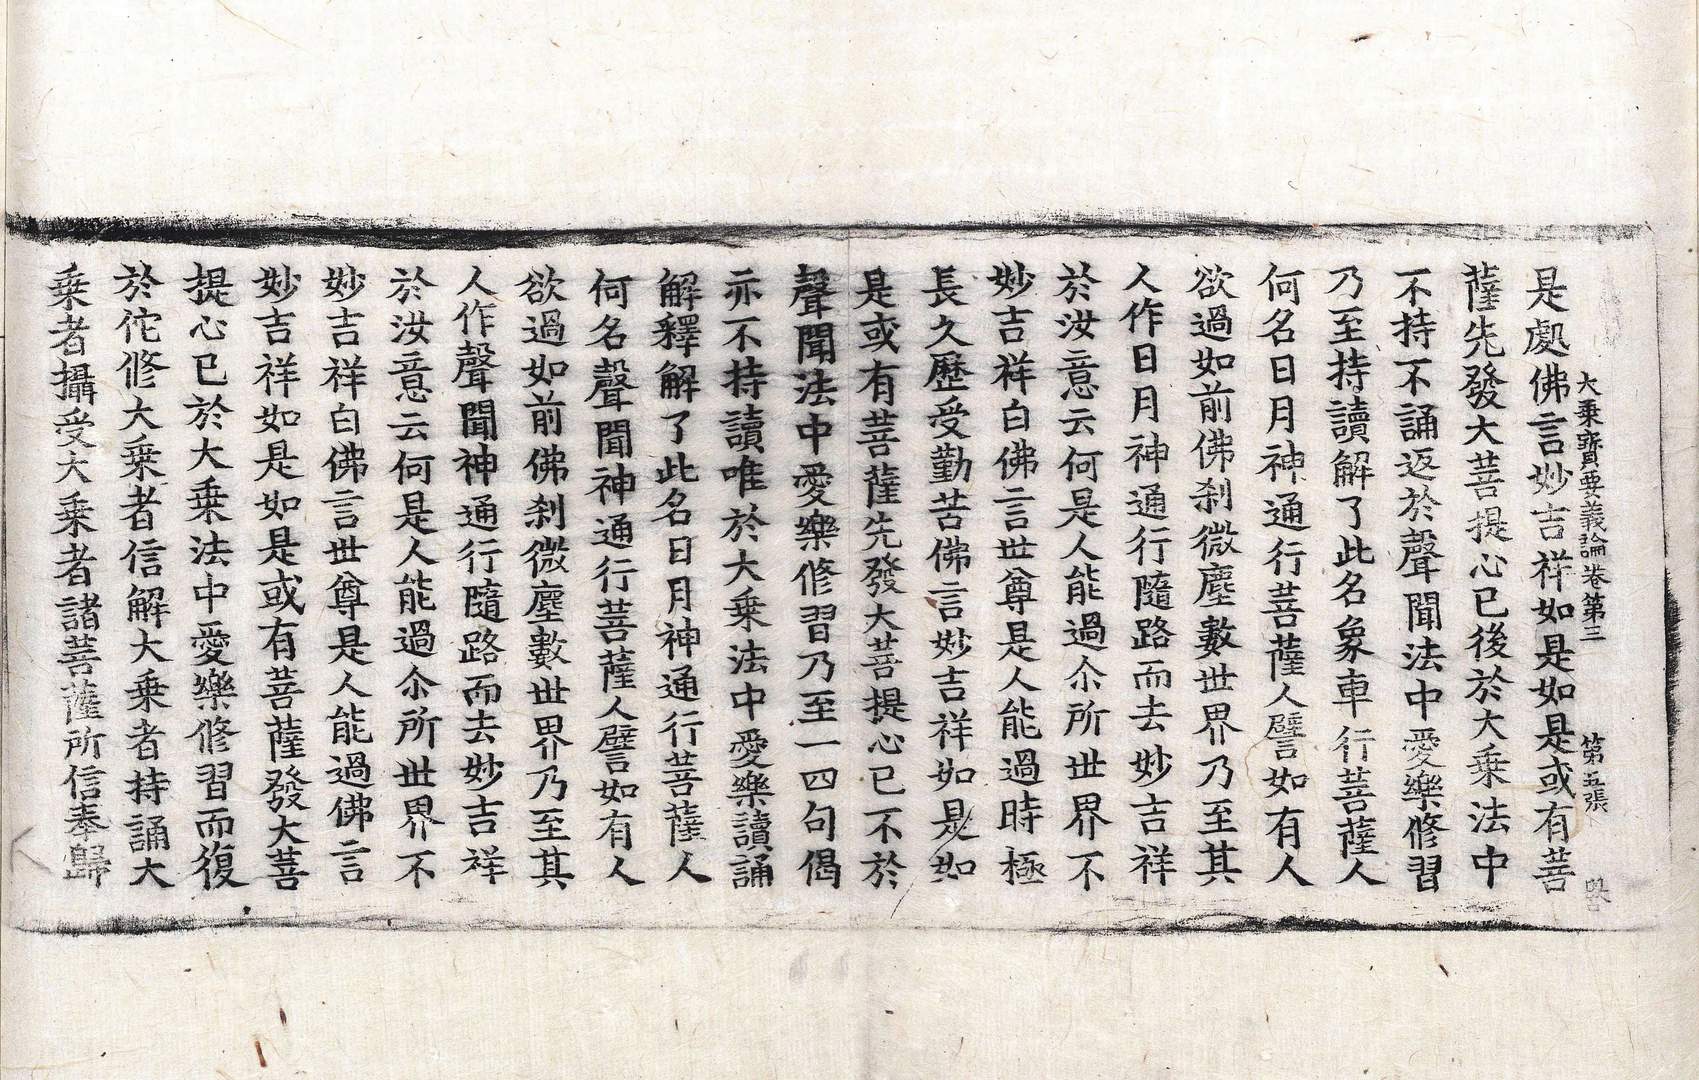 大乗寳要義論卷第三　第五張
是處佛言妙吉祥如是如是或有菩
薩先發大菩提心已後於大乗法中
不持不誦返於聲聞法中愛樂修習
乃至持讀解了此名象車行菩薩人
何名日月神通行菩薩人譬如有人
欲過如前佛刹微塵數世界乃至其
人作日月神通行隨路而去妙吉祥
於汝意云何是人能過尒所世界不
妙吉祥白佛言世尊是人能過時極
長久歷受勤苦佛言妙吉祥如是如
是或有菩薩先發大菩提心已不於
聲聞法中愛樂修習乃至一四句偈
亦不持讀唯於大乗法中愛樂讀誦
解釋解了此名日月神通行菩薩人
何名聲聞神通行菩薩人譬如有人
欲過如前佛刹微塵數世界乃至其
人作聲聞神通行隨路而去妙吉祥
於汝意云何是人能過尒所世界不
妙吉祥白佛言世尊是人能過佛言
妙吉祥如是如是或有菩薩發大菩
提心已於大乗法中愛樂修習而復
於佗修大乗者信解大乗者持誦大
乗者攝受大乗者諸菩薩所信奉歸